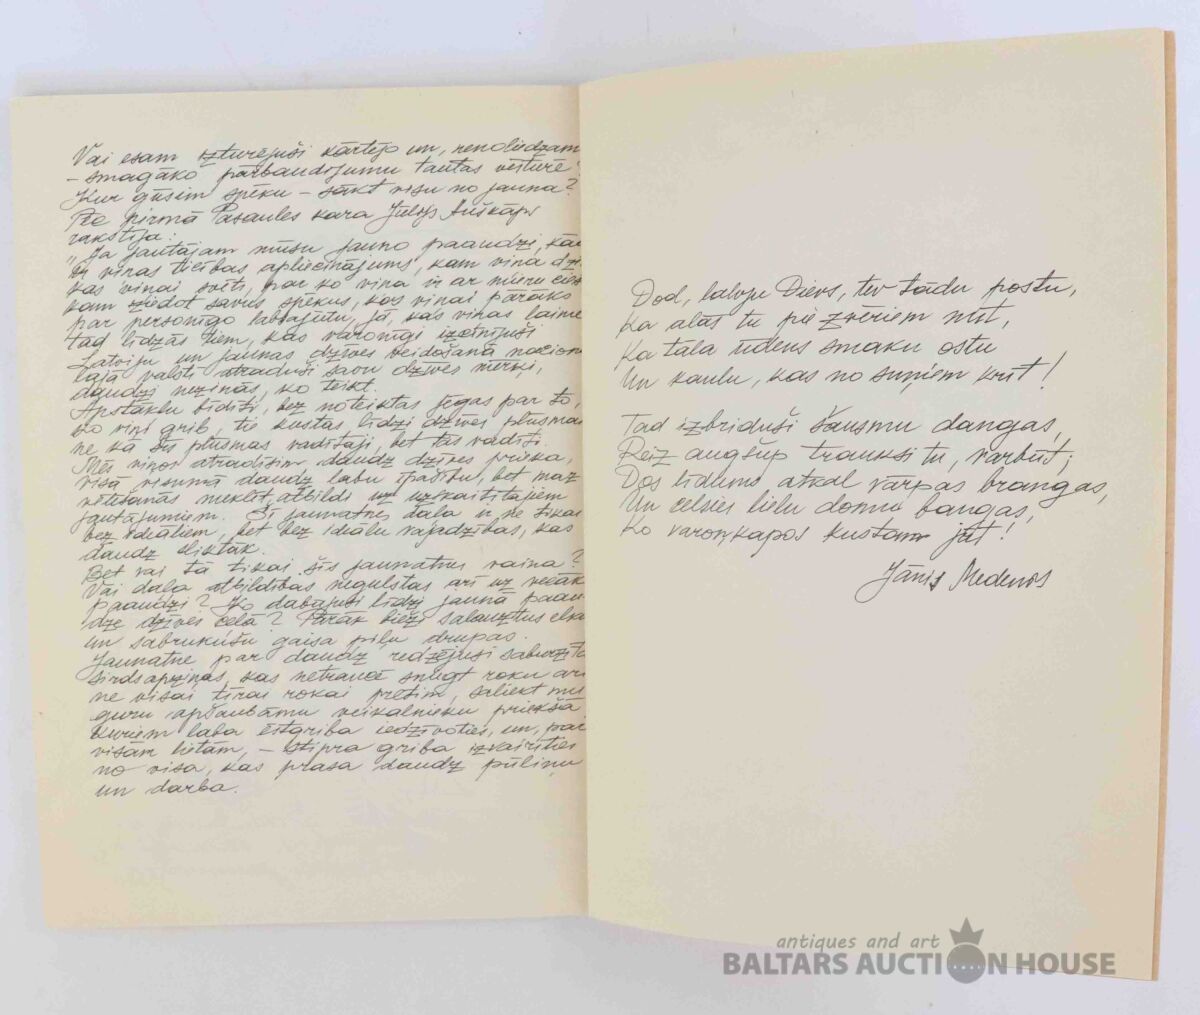 Vai esam izturējuši kārtējo un, nenoliedzam
– smagāko pārbaudījumu tautas vēsturē?
Kur gūsim spēku – sākt visu no jauna?
Pēc pirmā Pasaules kara Jūlijs Auškāps
rakstīja:
"Ja jautājam mūsu jauno paaudzi, kā
ir viņas ticības apliecinājums, kam viņa dz
kas viņai svēti, par ko viņa ir ar mieru cies
kam ziedot savus spēkus, kas viņai pārāks
par personīgo labklājību, jā, kas viņas laime
tad līdzās tiem, kas varonīgi izcīnījuši
Latviju un jaunas dzīves veidošanā nacionā
lajā valstī atraduši savu dzīves mērķi,
daudzi nezinās, ko teikt.
Apstākļu bīdīti, bez noteiktas jēgas par to,
ko viņi grib, tie kustas līdzi dzīves plūsmai
ne kā šīs plūsmas vadītāji, bet tās vadīti.
Mēs viņos atradīsim daudz dzīves prieka,
visā visumā daudz labu īpašību, bet maz
vēlēšanās meklēt atbildi uz uzskaitītajiem
jautājumiem. Šī jaunatnes daļa ir ne tikai
bez ideāliem, bet bez ideālu vajadzības, kas
daudz sliktāk.
Bet vai tā tikai šīs jaunatnes vaina?
Vai daļa atbildības negulstas arī uz vecāk
paaudzi? Ko dabūjusi līdzi jaunā paau
dze dzīves ceļā? Pārāk bieži salauztus elku
un sabrukušu gaisa piļu drupas.
Jaunatne par daudz redzējusi saburzītas
sirdsapziņas, kas netraucē sniegt roku arī
ne visai tīrai rokai pretim, saliekt mu
guru apšaubāmu veikalnieku priekšā
kuriem laba ēstgriba iedzīvoties, un, pār
visām lietām, – stipra griba izvairīties
no visa, kas prasa daudz pūliņu
un darba.
Dod, latvju Dievs, tev tādu postu,
Ka alās tu pie zvēriem mīt,
Ka tāla ūdens smaku ostu
Un kaulu, kas no suņiem krīt!
Tad izbriduši šausmu dangas,
Reiz augšup trauksi tu, varbūt;
Dos līdums atkal vārpas brangas,
Un celsies lielu domu bangas,
Ko varoņkapos kustam jūt!
Jānis Medenis
antiques and art
BALTARS AUCTION HOUSE